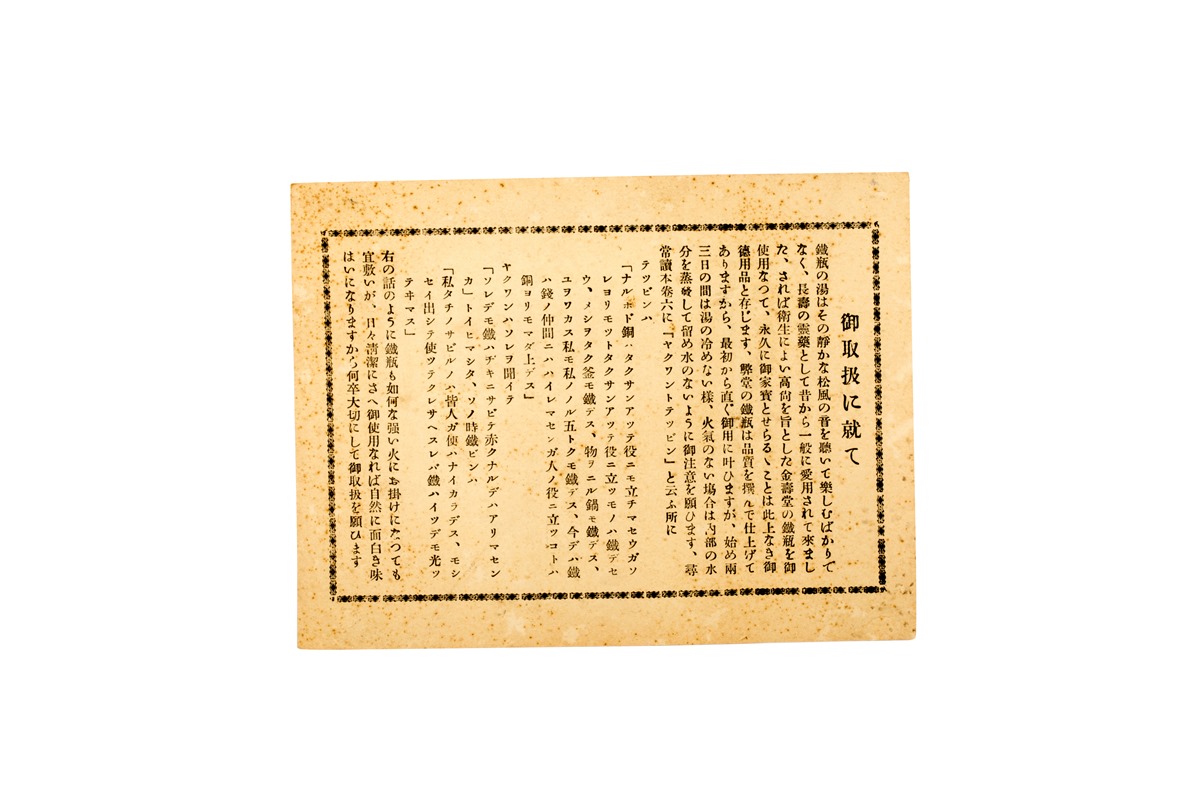 御取扱に就て
鐵瓶の湯はその靜かな松風の音を聽いて樂しむばかりで
なく、長壽の靈藥として昔から一般に愛用されて來まし
た、されば衛生によい高尙を旨とした金壽堂の鐵瓶を御
使用なつて、永久に御家寳とせらるゝことは此上なき御
德用品と存じます、弊堂の鐵瓶は品質を撰んで仕上げて
ありますから、最初から直ぐ御用に叶ひますが、始め兩
三日の間は湯の冷めない樣、火氣のない塲合は內部の水
分を蒸發して留め水のないように御注意を願ひます、尋
常讀本卷六に「ヤクワントテツビン」と云ふ所に
テツビンハ
「ナルホド銅ハタクサンアツテ役ニモ立チマセウガソ
レヨリモツトタクサンアツテ役ニ立ツモノハ鐵デセ
ウ、メシヲタク釜モ鐵デス、物ヲニル鍋モ鐵デス、
ユヲワカス私モ私ノノル五トクモ鐵デス、今デハ鐵
ハ錢ノ仲間ニハハイレマセンガ人ノ役ニ立ツコトハ
銅ヨリモマダ上デス」
ヤクワンハソレヲ聞イテ
「ソレデモ鐵ハヂキニサビテ赤クナルデハアリマセン
カ」トイヒマシタ、ソノ時鐵ビンハ
「私タチノサビルノハ皆人ガ使ハナイカラデス、モシ
セイ出シテ使ツテクレサヘスレバ鐵ハイツデモ光ツ
テヰマス」
右の話のように鐵瓶も如何な强い火にお掛けになつても
宜敷いが、日々淸潔にさへ御使用なれば自然に面白き味
はいになりますから何卒大切にして御取扱を願ひます